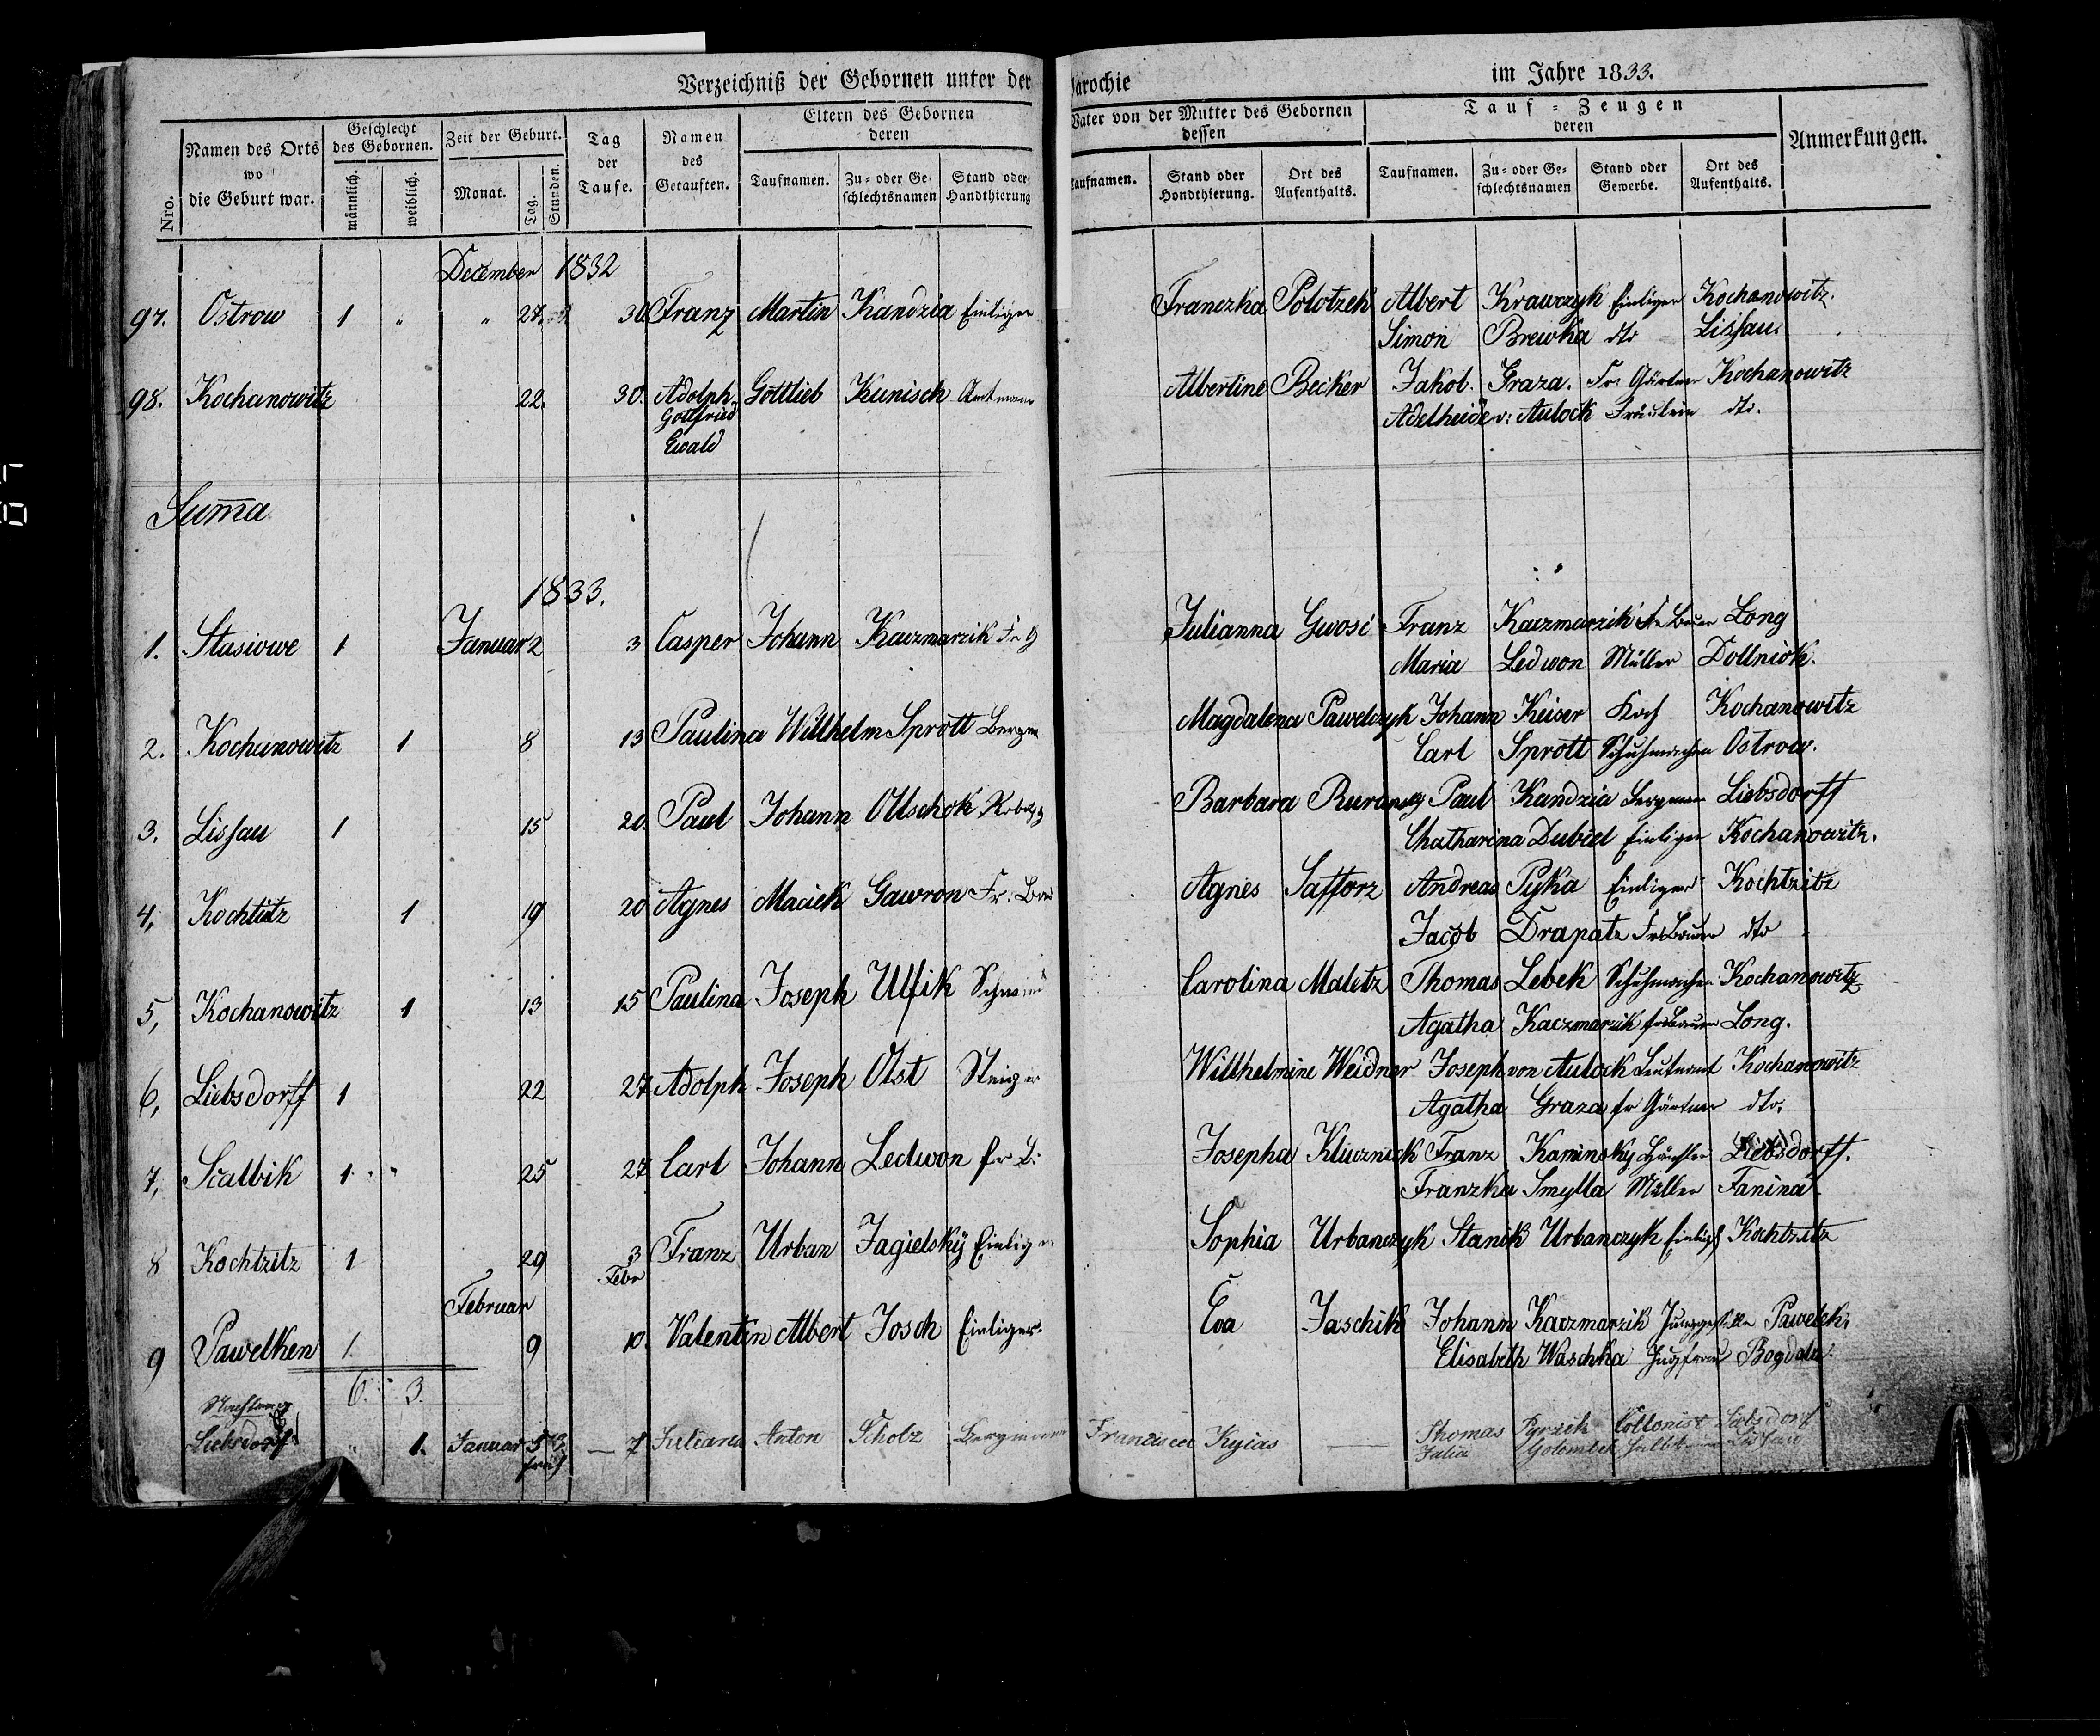 Verzeichniß der Gebornen unter der Parochie im Jahre 1833.
Nro. Namen des Orts wo die Geburt war. Geschlecht des Gebornen. männlich. weiblich. Zeit der Geburt. Monat. Tag. Stunden. Tag der Taufe. Namen des Getauften. Eltern des Gebornen deren Taufnamen. Zu- oder Geschlechtsnamen Stand oder Handthierung
Vater von der Mutter des Gebornen dessen Taufnamen. Stand oder Hondthierung. Ort des Aufenthalts. Tauf-Zeugen deren Taufnamen. Zu- oder Geschlechtsnamen Stand oder Gewerbe. Ort des Aufenthalts. Anmerkungen.
December 1832
97. Ostrow 1 " " 27. 30. Franz Martin Kandzia Einlieger Franczka Polotzek Albert Krawczyk Einlieger Kochanowitz.
Simon Brewka dto Lissau.
98. Kochanowitz 22. 30. Adolph Gottlieb Kunisch Amtmann Albertine Becker Jakob. Graza. Fr. Gärtner Kochanowitz
Gottfried Adelheide v: Aulock Fräulein dto.
Ewald
Suma
1833.
1. Stasiowe 1 Januar 2 3 Casper Johann Kaczmarzik Fr G Julianna Gwosc Franz Kaczmarzik Fr Bauer Long
Maria Ledwon Müller Dollniok.
2. Kochanowitz 1 8 13 Paulina Willhelm Sprott Bergm Magdalena Pawelczyk Johann Keiser Koch Kochanowitz
Carl Sprott Schuhmacher Ostrow.
3. Lissau 1 15 20. Paul Johann Ollschok Barbara Paul Kandzia Bergman Liebsdorff
Chatharina Dubiel Einlieger Kochanowitz.
4, Kochtitz 1 19 20 Agnes Maciek Gawron Fr. Bau Agnes Safforz Andreas Pyka Einlieger Kochtzitz
Jacob Drapatz Fr Bauer dto
5, Kochanowitz 1 13 15 Paulina Joseph Ulfik Schmied Carolina Maletz Thomas Lebek Schuhmacher Kochanowitz
Agatha Kaczmarzik fr Bauer Long.
6, Liebsdorff 1 22 27 Adolph Joseph Olst Steiger Willhelmine Weidner Joseph von Aulock Leutnant Kochanowitz
Agatha Graza fr Gärtner dto.
7, Scalbik 1 " 25 27 Carl Johann Ledwon fr B: Josepha Klucznick Franz Kaminsky Häusler Liebsdorff.
Franzka Smylla Müller Fanina.
8 Kochtzitz 1 29 3 Febr Franz Urban Jagielsky Einlieger Sophia Urbanczyk Stanik Urbanczyk Einlieg Kochtzitz
Februar
9 Pawelken 1. 9 10. Valentin Albert Josch Einlieger. Eva Jaschik Johann Kaczmarzik Junggeselle Pawelek.
Elisabeth Waschka Jugfrau Bogdala
6. 3.
Nachtrag
Liebsdorff " 1. Januar 5 früh — 7 Juliana Anton Scholz Bergmann Francisca Kyias — Thomas Pyrzik Collonist Liebsdorf
Julia Golombek Lissau